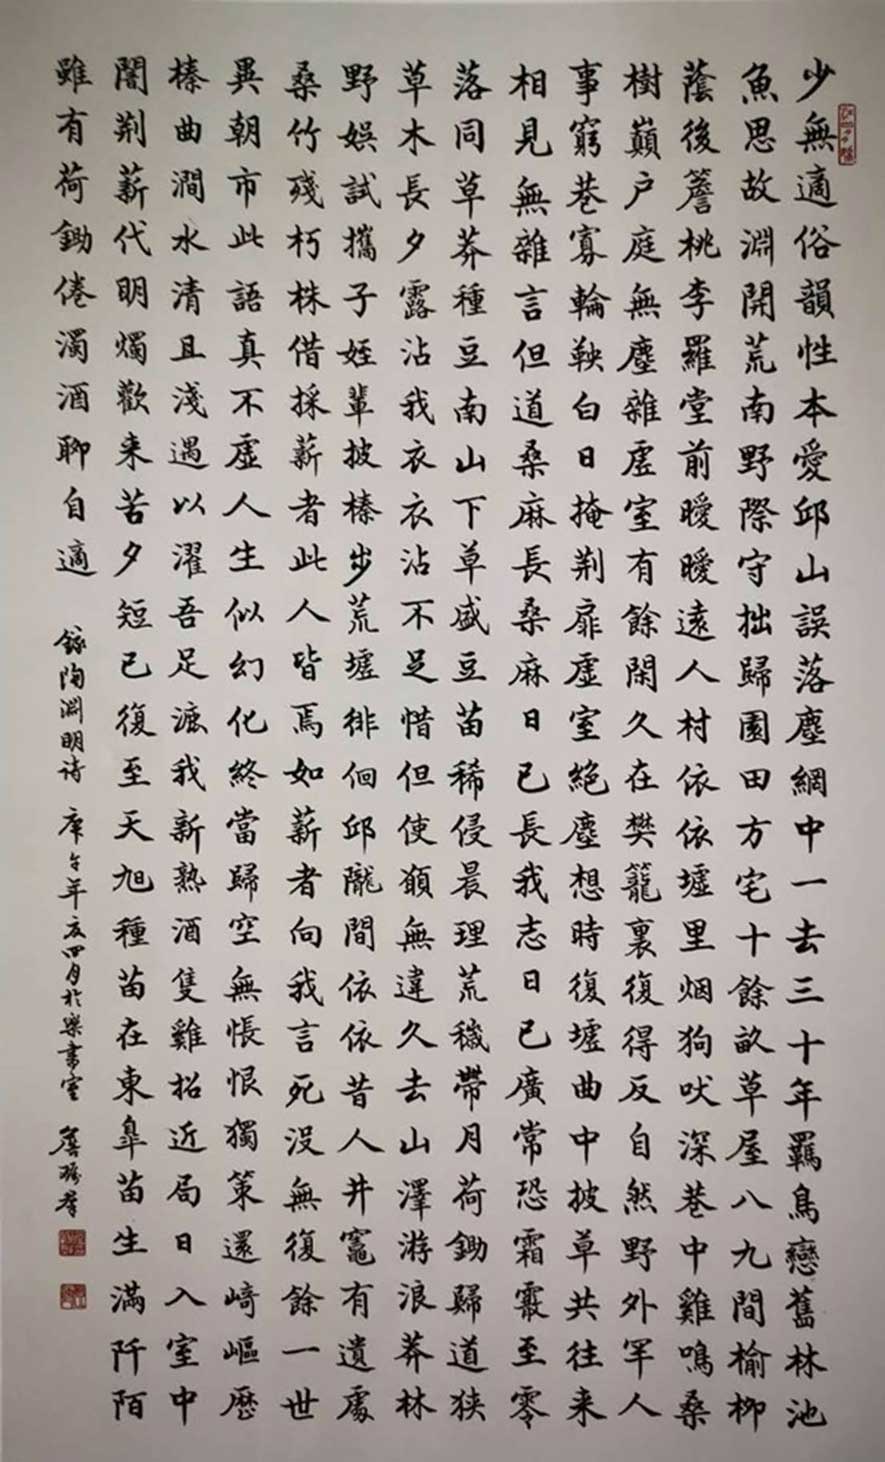 少無適俗韻性本愛邱山誤落塵網中一去三十年羈鳥戀舊林池
魚思故淵開荒南野際守拙歸園田方宅十餘畝草屋八九間榆柳
蔭後簷桃李羅堂前曖曖遠人村依依墟里烟狗吠深巷中雞鳴桑
樹巔户庭無塵雜虛室有餘閑久在樊籠裏復得反自然野外罕人
事窮巷寡輪鞅白日掩荆扉虛室絕塵想時復墟曲中披草共往来
相見無雜言但道桑麻長桑麻日已長我志日已廣常恐霜霰至零
落同草莽種豆南山下草盛豆苗稀侵晨理荒穢帶月荷鋤歸道狭
草木長夕露沾我衣衣沾不足惜但使願無違久去山澤游浪莽林
野娛試攜子姪輩披榛步荒墟徘徊邱隴間依依昔人井竈有遺處
桑竹殘朽株借採薪者此人皆焉如薪者向我言死没無復餘一世
異朝市此語真不虛人生似幻化終當歸空無悵恨獨策還崎嶇歷
榛曲澗水清且淺遇以濯吾足漉我新熟酒隻雞招近局日入室中
闇荆薪代明燭歡来苦夕短已復至天旭種苗在東皐苗生滿阡陌
雖有荷鋤倦濁酒聊自適 錄陶淵明诗 庚子年夏四月於樂書室